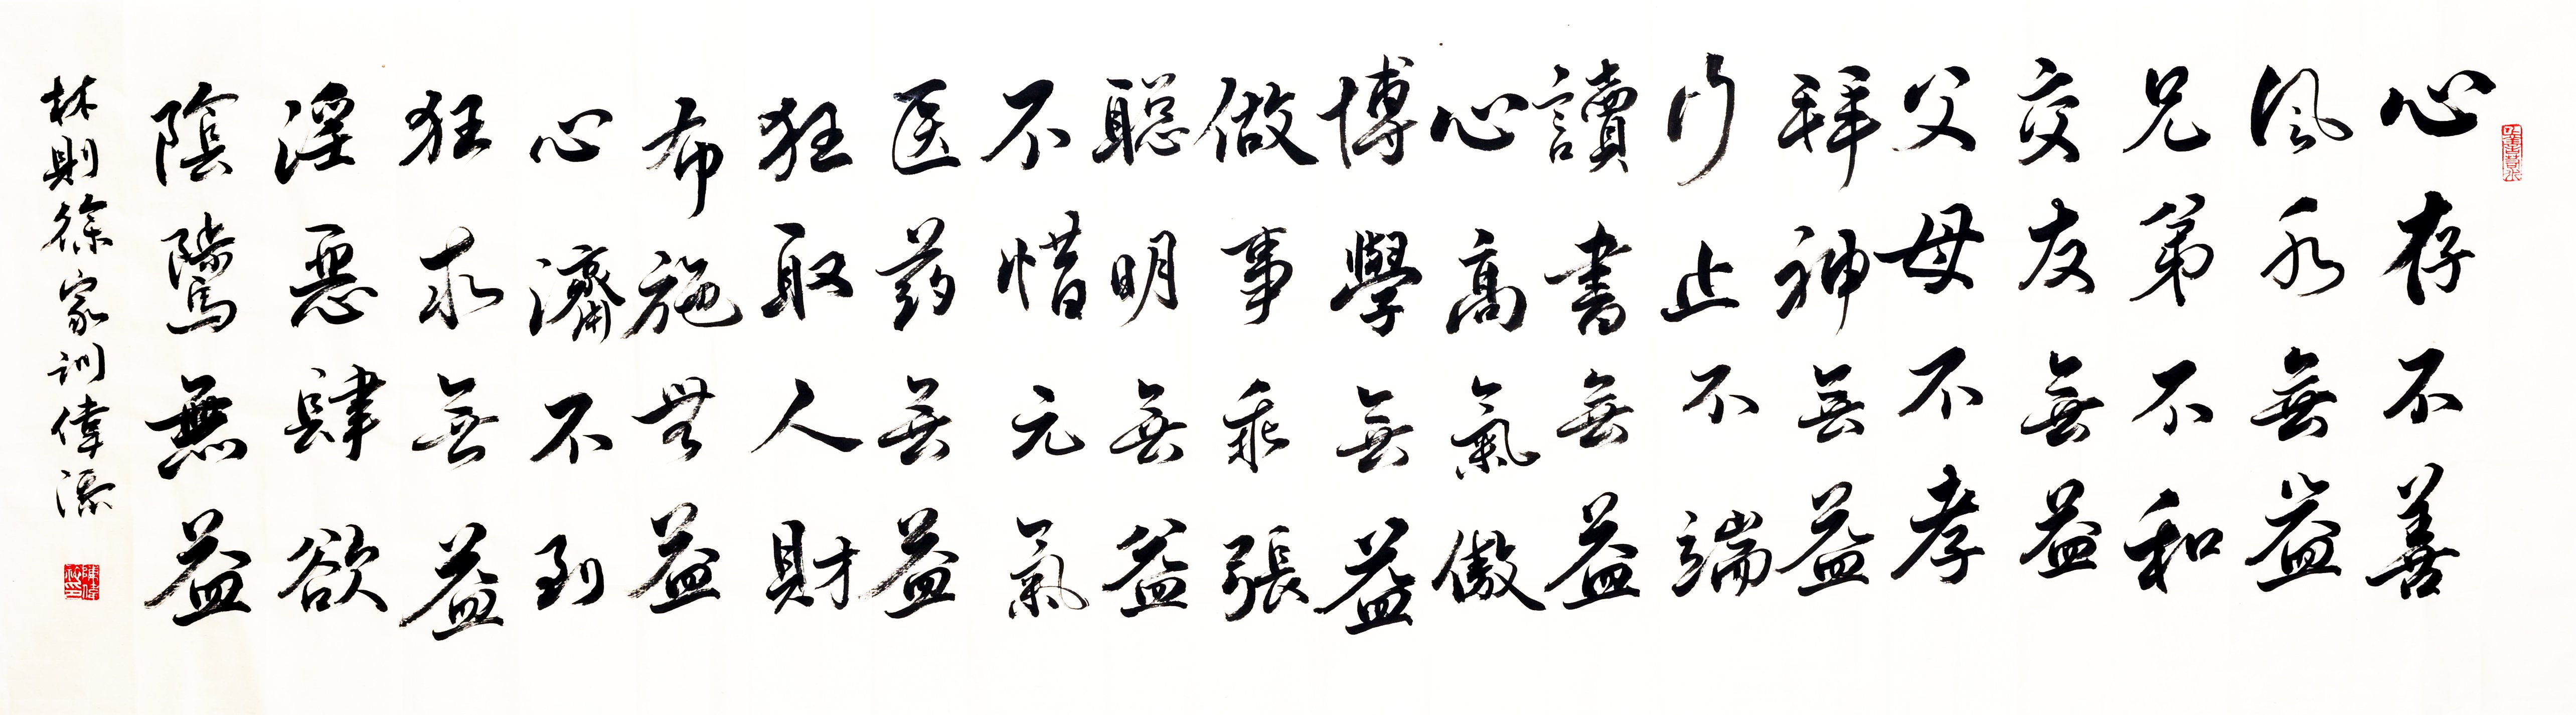 心存不善
风水無益
兄弟不和
交友無益
父母不孝
拜神無益
行止不端
讀書無益
心高氣傲
博學無益
做事乖張
聪明無益
不惜元氣
医药無益
狂取人財
布施無益
心濟不到
狂求無益
淫惡肆欲
陰騭無益
林則徐家訓偉添